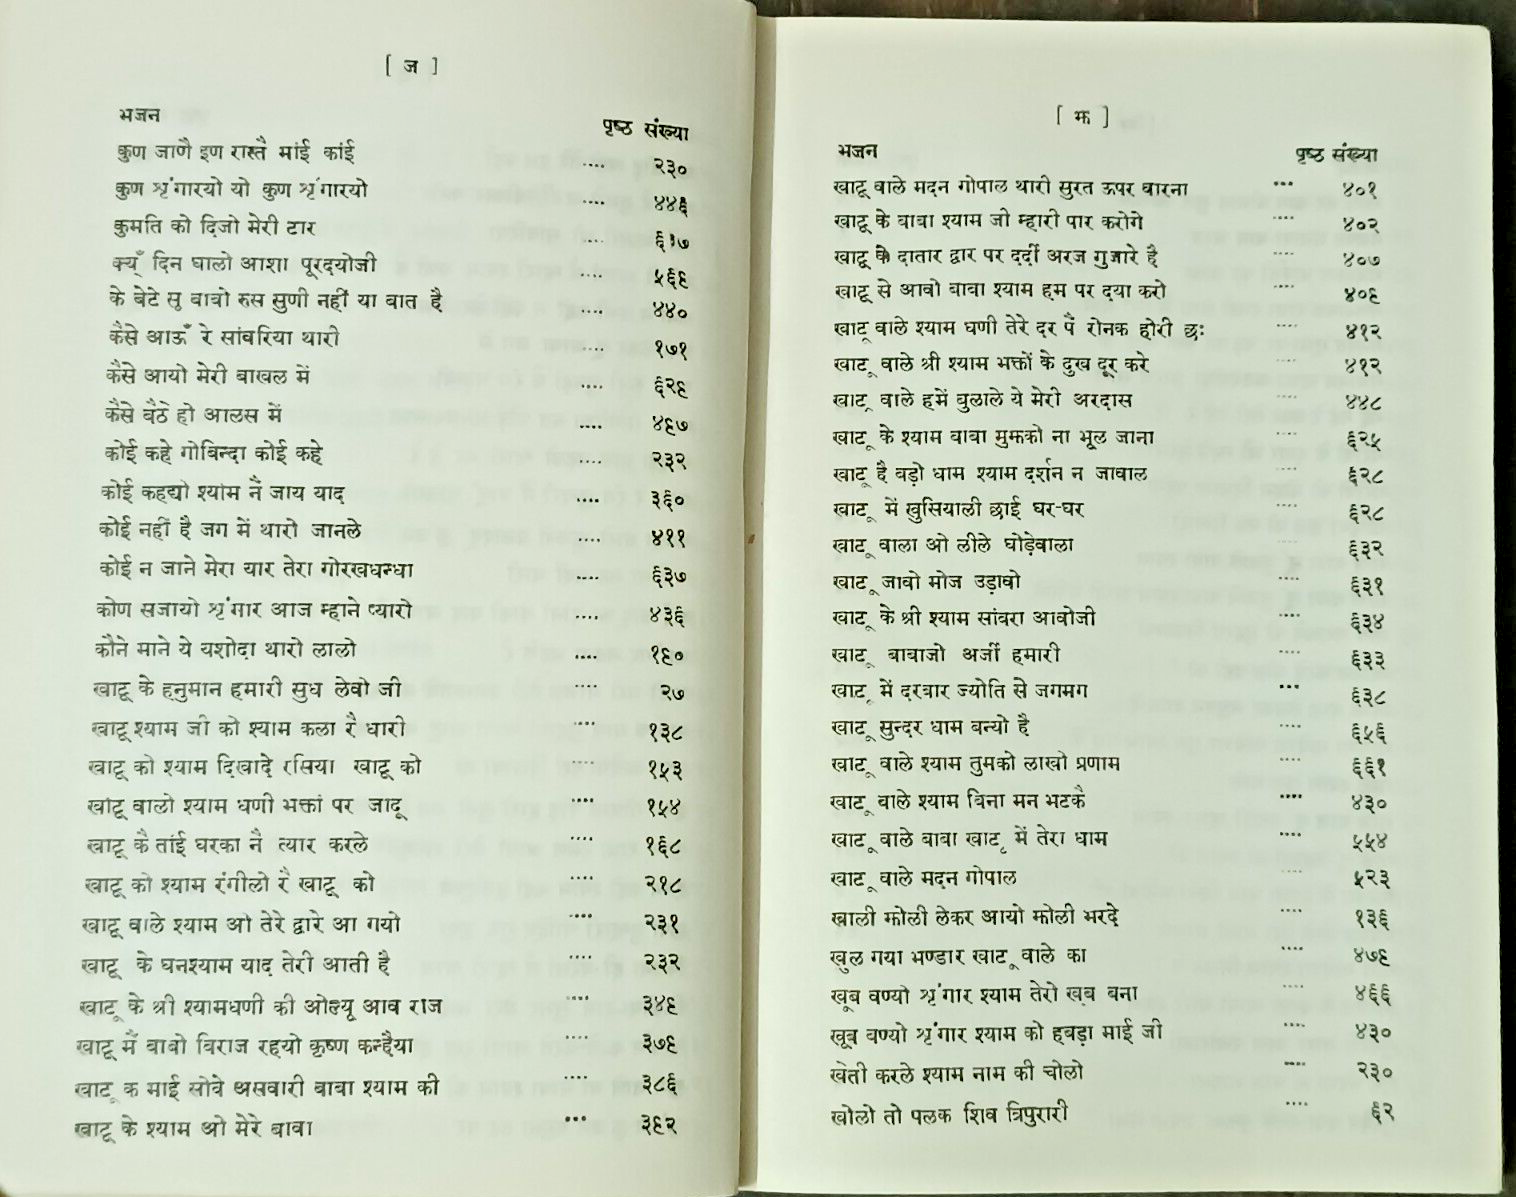 [ ज ]
भजन पृष्ठ संख्या
कुण जाणै इण रास्तै मांई कांई .... २३०
कुण श्रृंगारयो यो कुण श्रृंगारयो .... ४४६
कुमति को दिजो मेरी टार .... ६१७
क्यूँ दिन घालो आशा पूरदयोजी .... ५६६
के बेटे सु बाबो रुस सुणी नहीं या बात है .... ४४०
कैसे आऊँ रे सांवरिया थारी .... १७१
कैसे आयो मेरी बाखल में .... ६२९
कैसे बैठे हो आलस में .... ४९७
कोई कहे गोबिन्दा कोई कहे .... २३२
कोई कहद्यो श्याम नैं जाय याद .... ३६०
कोई नहीं है जग में थारो जानले .... ४११
कोई न जाने मेरा यार तेरा गोरखधन्धा .... ६३७
कोण सजायो श्रृंगार आज म्हाने प्यारो .... ४३६
कौने माने ये यशोदा थारो लालो .... १९०
खाटू के हनुमान हमारी सुध लेवो जी .... २७
खाटू श्याम जी को श्याम कला रै धारी .... १३८
खाटू को श्याम दिखादे रसिया खाटू को .... १५३
खाटू वालो श्याम धणी भक्तां पर जादू .... १५४
खाटू कै तांई घरका नै त्यार करले .... १६८
खाटू को श्याम रंगीलो रै खाटू को .... २१८
खाटू वाले श्याम ओ तेरे द्वारे आ गयो .... २३१
खाटू के घनश्याम याद तेरी आती है .... २३२
खाटू के श्री श्यामधणी की ओल्यू आव राज .... ३४९
खाटू मैं बाबो विराज रहयो कृष्ण कन्हैया .... ३७९
खाटू क माई सोवे असवारी बाबा श्याम की .... ३८६
खाटू के श्याम ओ मेरे बाबा ... ३९२
[ झ ]
भजन पृष्ठ संख्या
खाटू वाले मदन गोपाल थारी सुरत ऊपर वारना ... ४०१
खाटू के बाबा श्याम जी म्हारी पार करोगे .... ४०२
खाटू के दातार द्वार पर दर्दी अरज गुजारे है .... ४०७
खाटू से आवो बाबा श्याम हम पर दया करो .... ४०९
खाटू वाले श्याम धणी तेरे दर पैं रोनक होरी छः .... ४१२
खाटू वाले श्री श्याम भक्तों के दुख दूर करे .... ४१२
खाटू वाले हमें बुलाले ये मेरी अरदास .... ४४८
खाटू के श्याम बाबा मुझको ना भूल जाना .... ६२५
खाटू है बड़ो धाम श्याम दर्शन न जावाल .... ६२८
खाटू में खुसियाली छाई घर-घर .... ६२८
खाटू वाला ओ लीले घोड़ेवाला .... ६३२
खाटू जावो मोज उड़ावो .... ६३१
खाटू के श्री श्याम सांवरा आवोजी .... ६३४
खाटू बाबाजो अर्जी हमारी .... ६३३
खाटू में दरबार ज्योति से जगमग ... ६३८
खाटू सुन्दर धाम बन्यो है .... ६५६
खाटू वाले श्याम तुमको लाखो प्रणाम .... ६६१
खाटू वाले श्याम बिना मन भटकै .... ४३०
खाटू वाले बाबा खाटू में तेरा धाम .... ५५४
खाटू वाले मदन गोपाल .... ५२३
खाली झोली लेकर आयो झोली भरदे .... १३६
खुल गया भण्डार खाटू वाले का .... ४७९
खूब वण्यो श्रृंगार श्याम तेरो खूब बना .... ४६६
खूब वण्यो श्रृंगार श्याम को हबड़ा माई जी .... ४३०
खेती करले श्याम नाम की चोलो .... २३०
खोलो तो पलक शिव त्रिपुरारी .... ६२